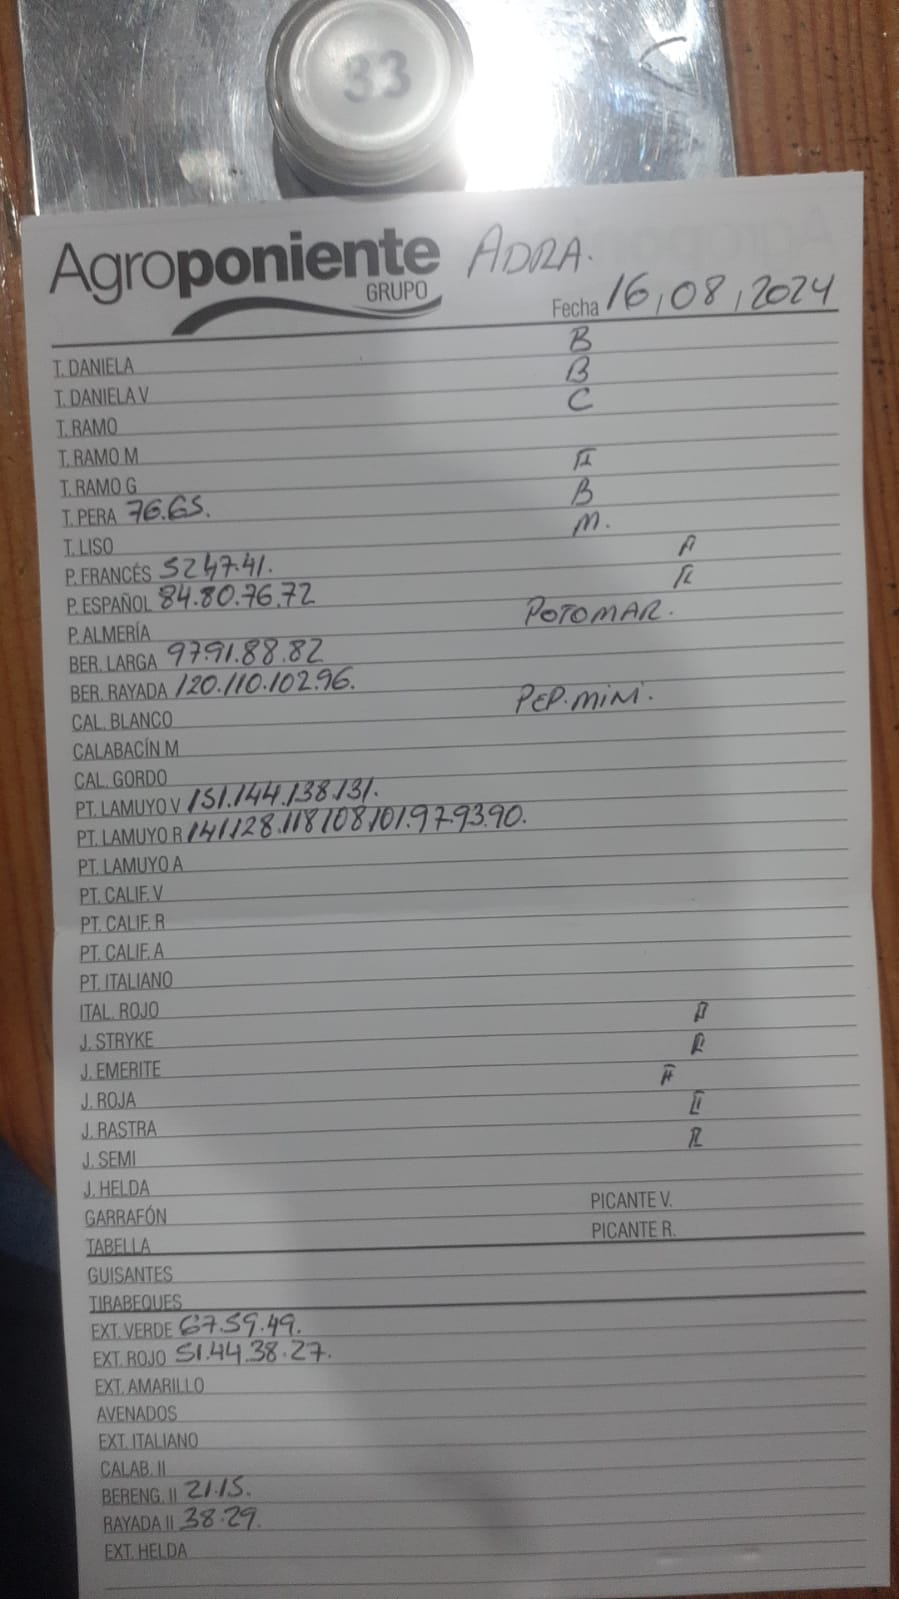 33
Agroponiente ADRA.
GRUPO
Fecha 16,08,2024
T. DANIELA B
T. DANIELA V B
T. RAMO C
T. RAMO M
T. RAMO G
T. PERA 76.65. B
T. LISO M.
P. FRANCÉS 52 47.41. A
P. ESPAÑOL 84.80.76.72
P. ALMERÍA POTOMAR.
BER. LARGA 97.91.88.82
BER. RAYADA 120.110.102.96.
CAL. BLANCO PEP.MINI.
CALABACÍN M
CAL. GORDO
PT. LAMUYO V 151.144.138.131.
PT. LAMUYO R 141.128.118.108.101.97.93.90.
PT. LAMUYO A
PT. CALIF. V
PT. CALIF. R
PT. CALIF. A
PT. ITALIANO
ITAL. ROJO
J. STRYKE
J. EMERITE
J. ROJA
J. RASTRA
J. SEMI
J. HELDA
GARRAFÓN PICANTE V.
TABELLA PICANTE R.
GUISANTES
TIRABEQUES
EXT. VERDE 67.59.49.
EXT. ROJO 51.44.38.27.
EXT. AMARILLO
AVENADOS
EXT. ITALIANO
CALAB. II
BERENG. II 21.15.
RAYADA II 38.29.
EXT. HELDA